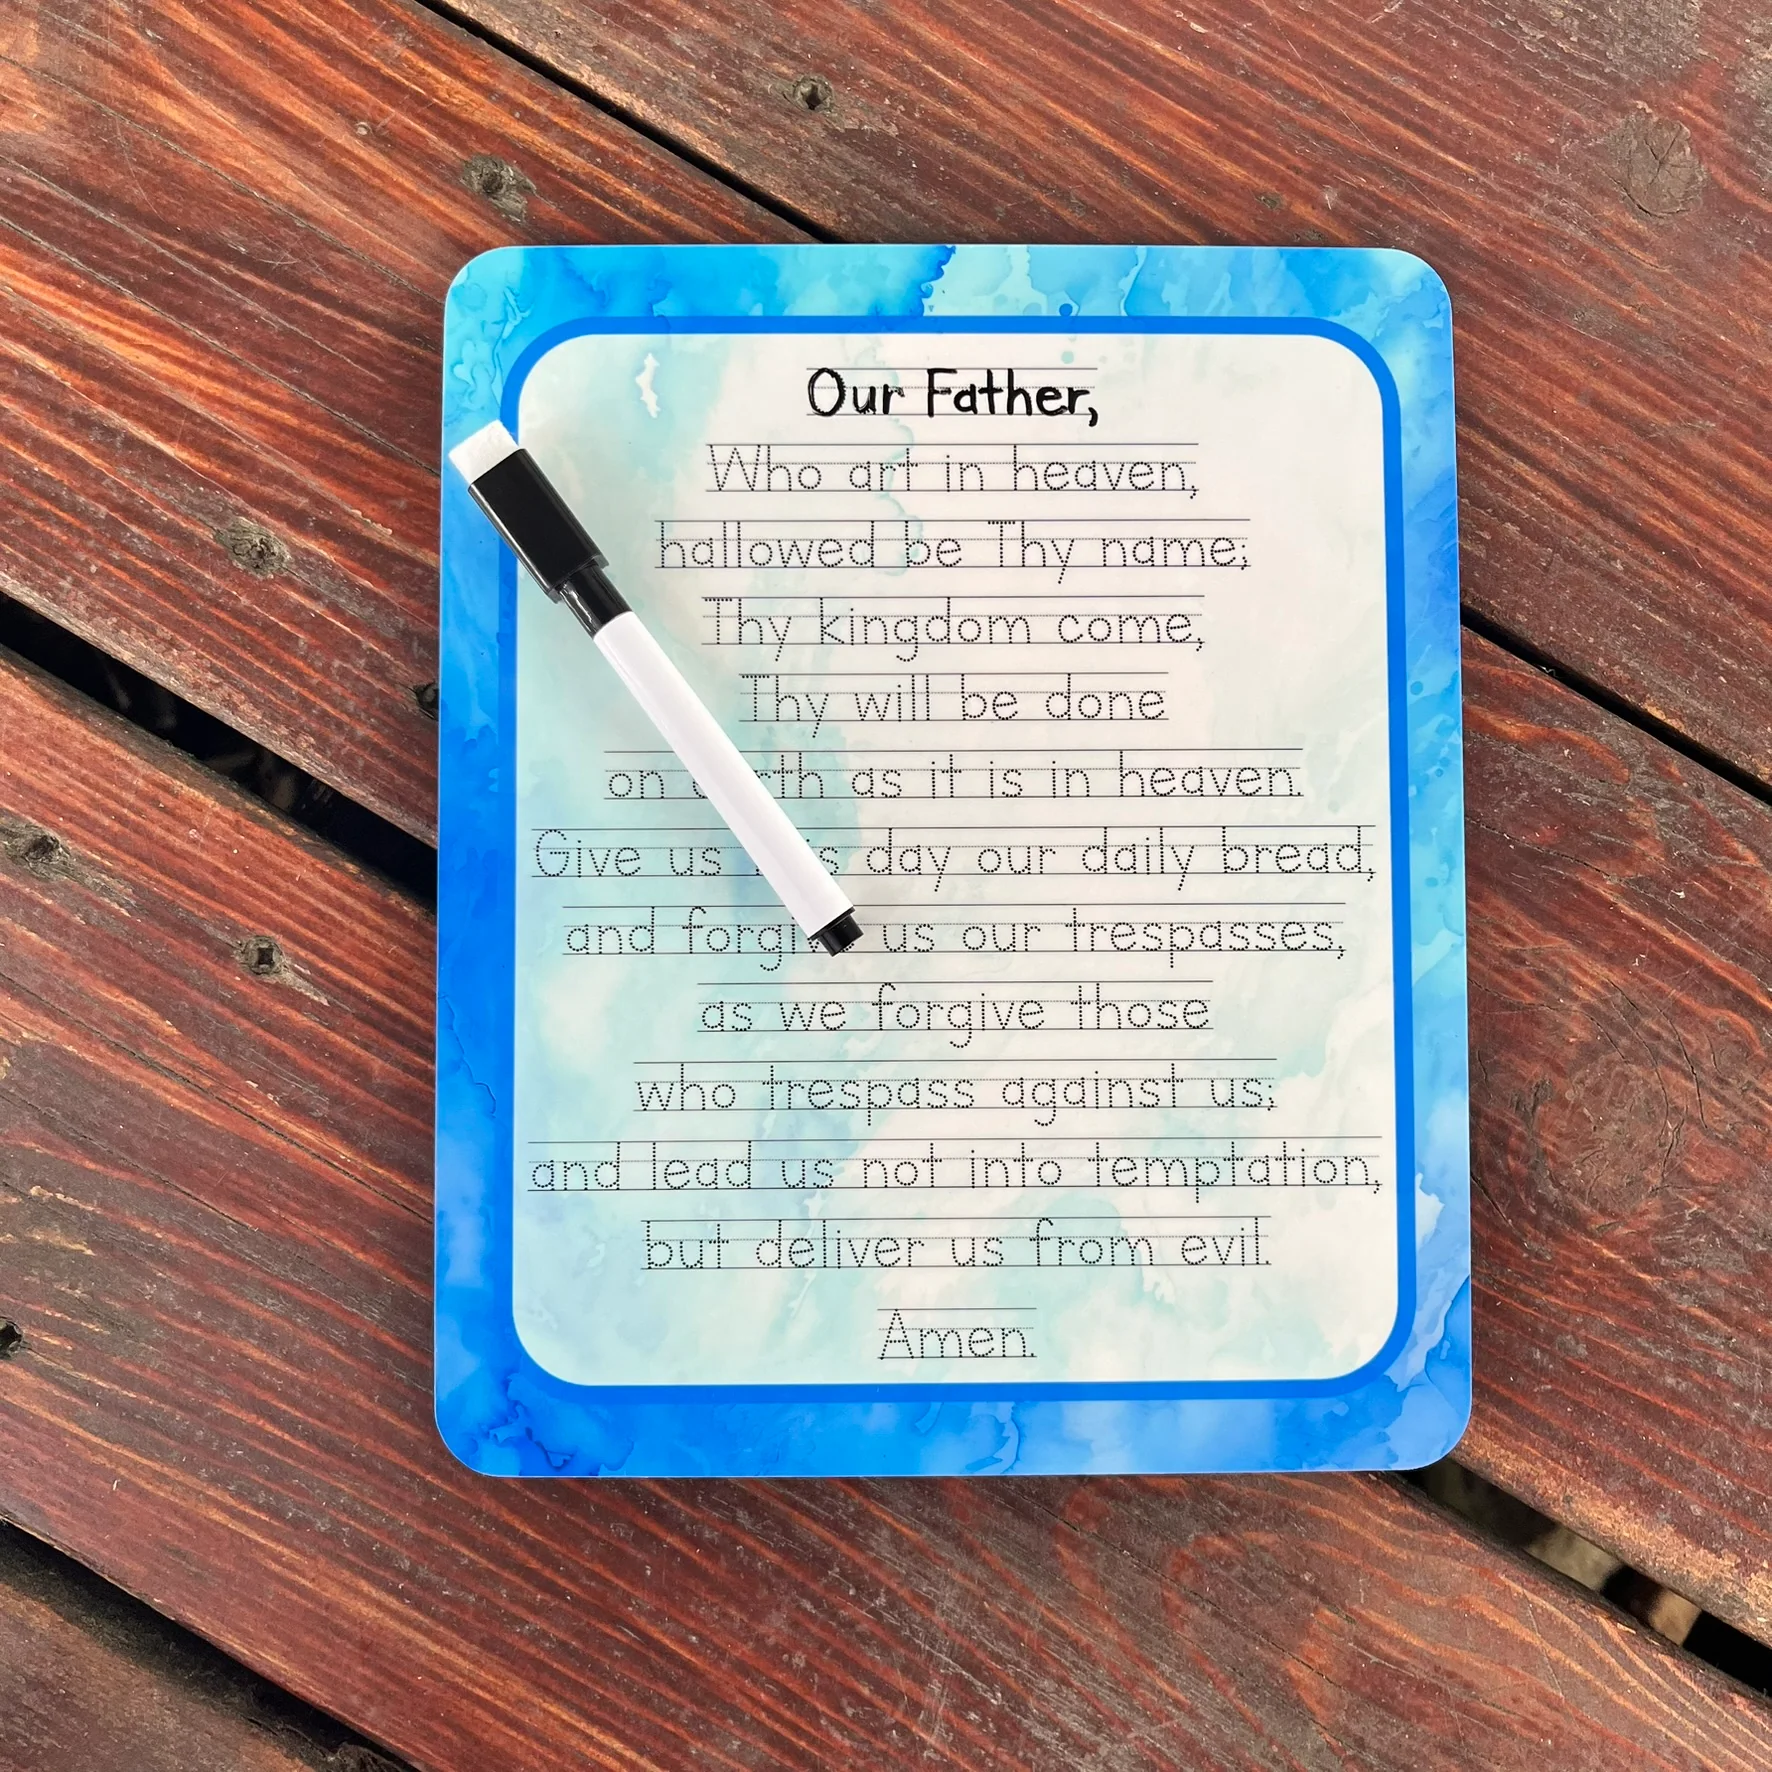 Our Father,
Who art in heaven,
hallowed be Thy name;
Thy kingdom come,
Thy will be done
on earth as it is in heaven.
Give us this day our daily bread,
and forgive us our trespasses,
as we forgive those
who trespass against us;
and lead us not into temptation,
but deliver us from evil.
Amen.